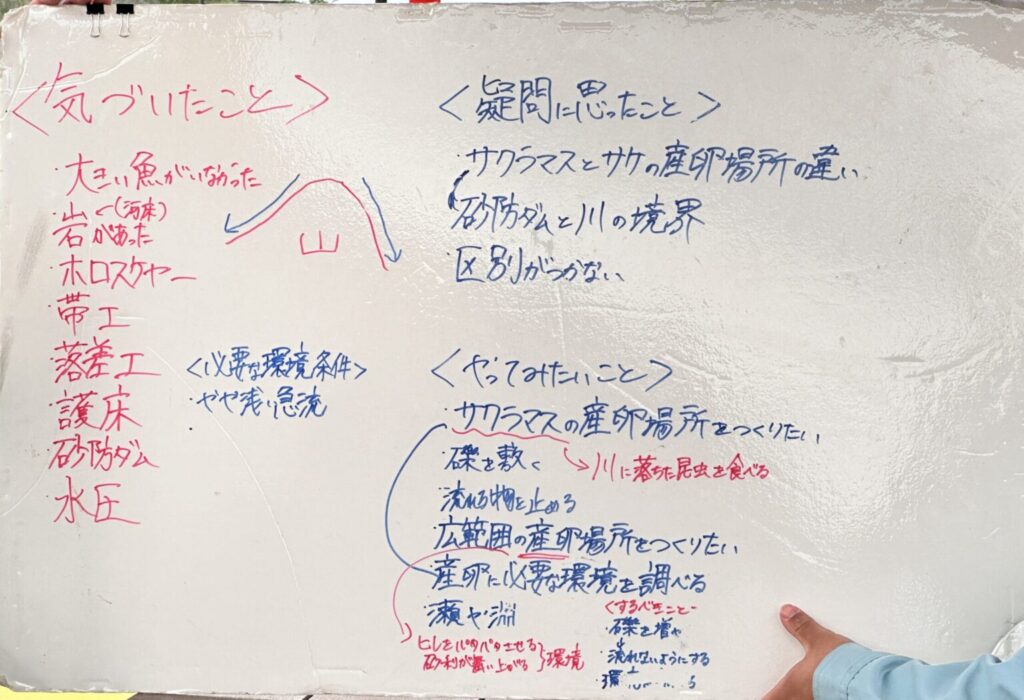 <気づいたこと>
・大きい魚がいなかった
・岩があった
(河床)
・ホロスケヤー
・帯工
・落差工
・護床
・砂防ダム
・水圧
山
<必要な環境条件>
・やや浅い急流
・
<疑問に思ったこと>
・サクラマスとサケの産卵場所の違い
・砂防ダムと川の境界
・区別がつかない
<やってみたいこと>
・サクラマスの産卵場所をつくりたい
川に落ちた昆虫を食べる
・礫を敷く
・流れる物を止める
・広範囲の産卵場所をつくりたい
・産卵に必要な環境を調べる
・瀬や淵
ヒレをパタパタさせる
砂利が舞い上がる
}環境
<するべきこと
・礫を増や
・流れないようにする
・環